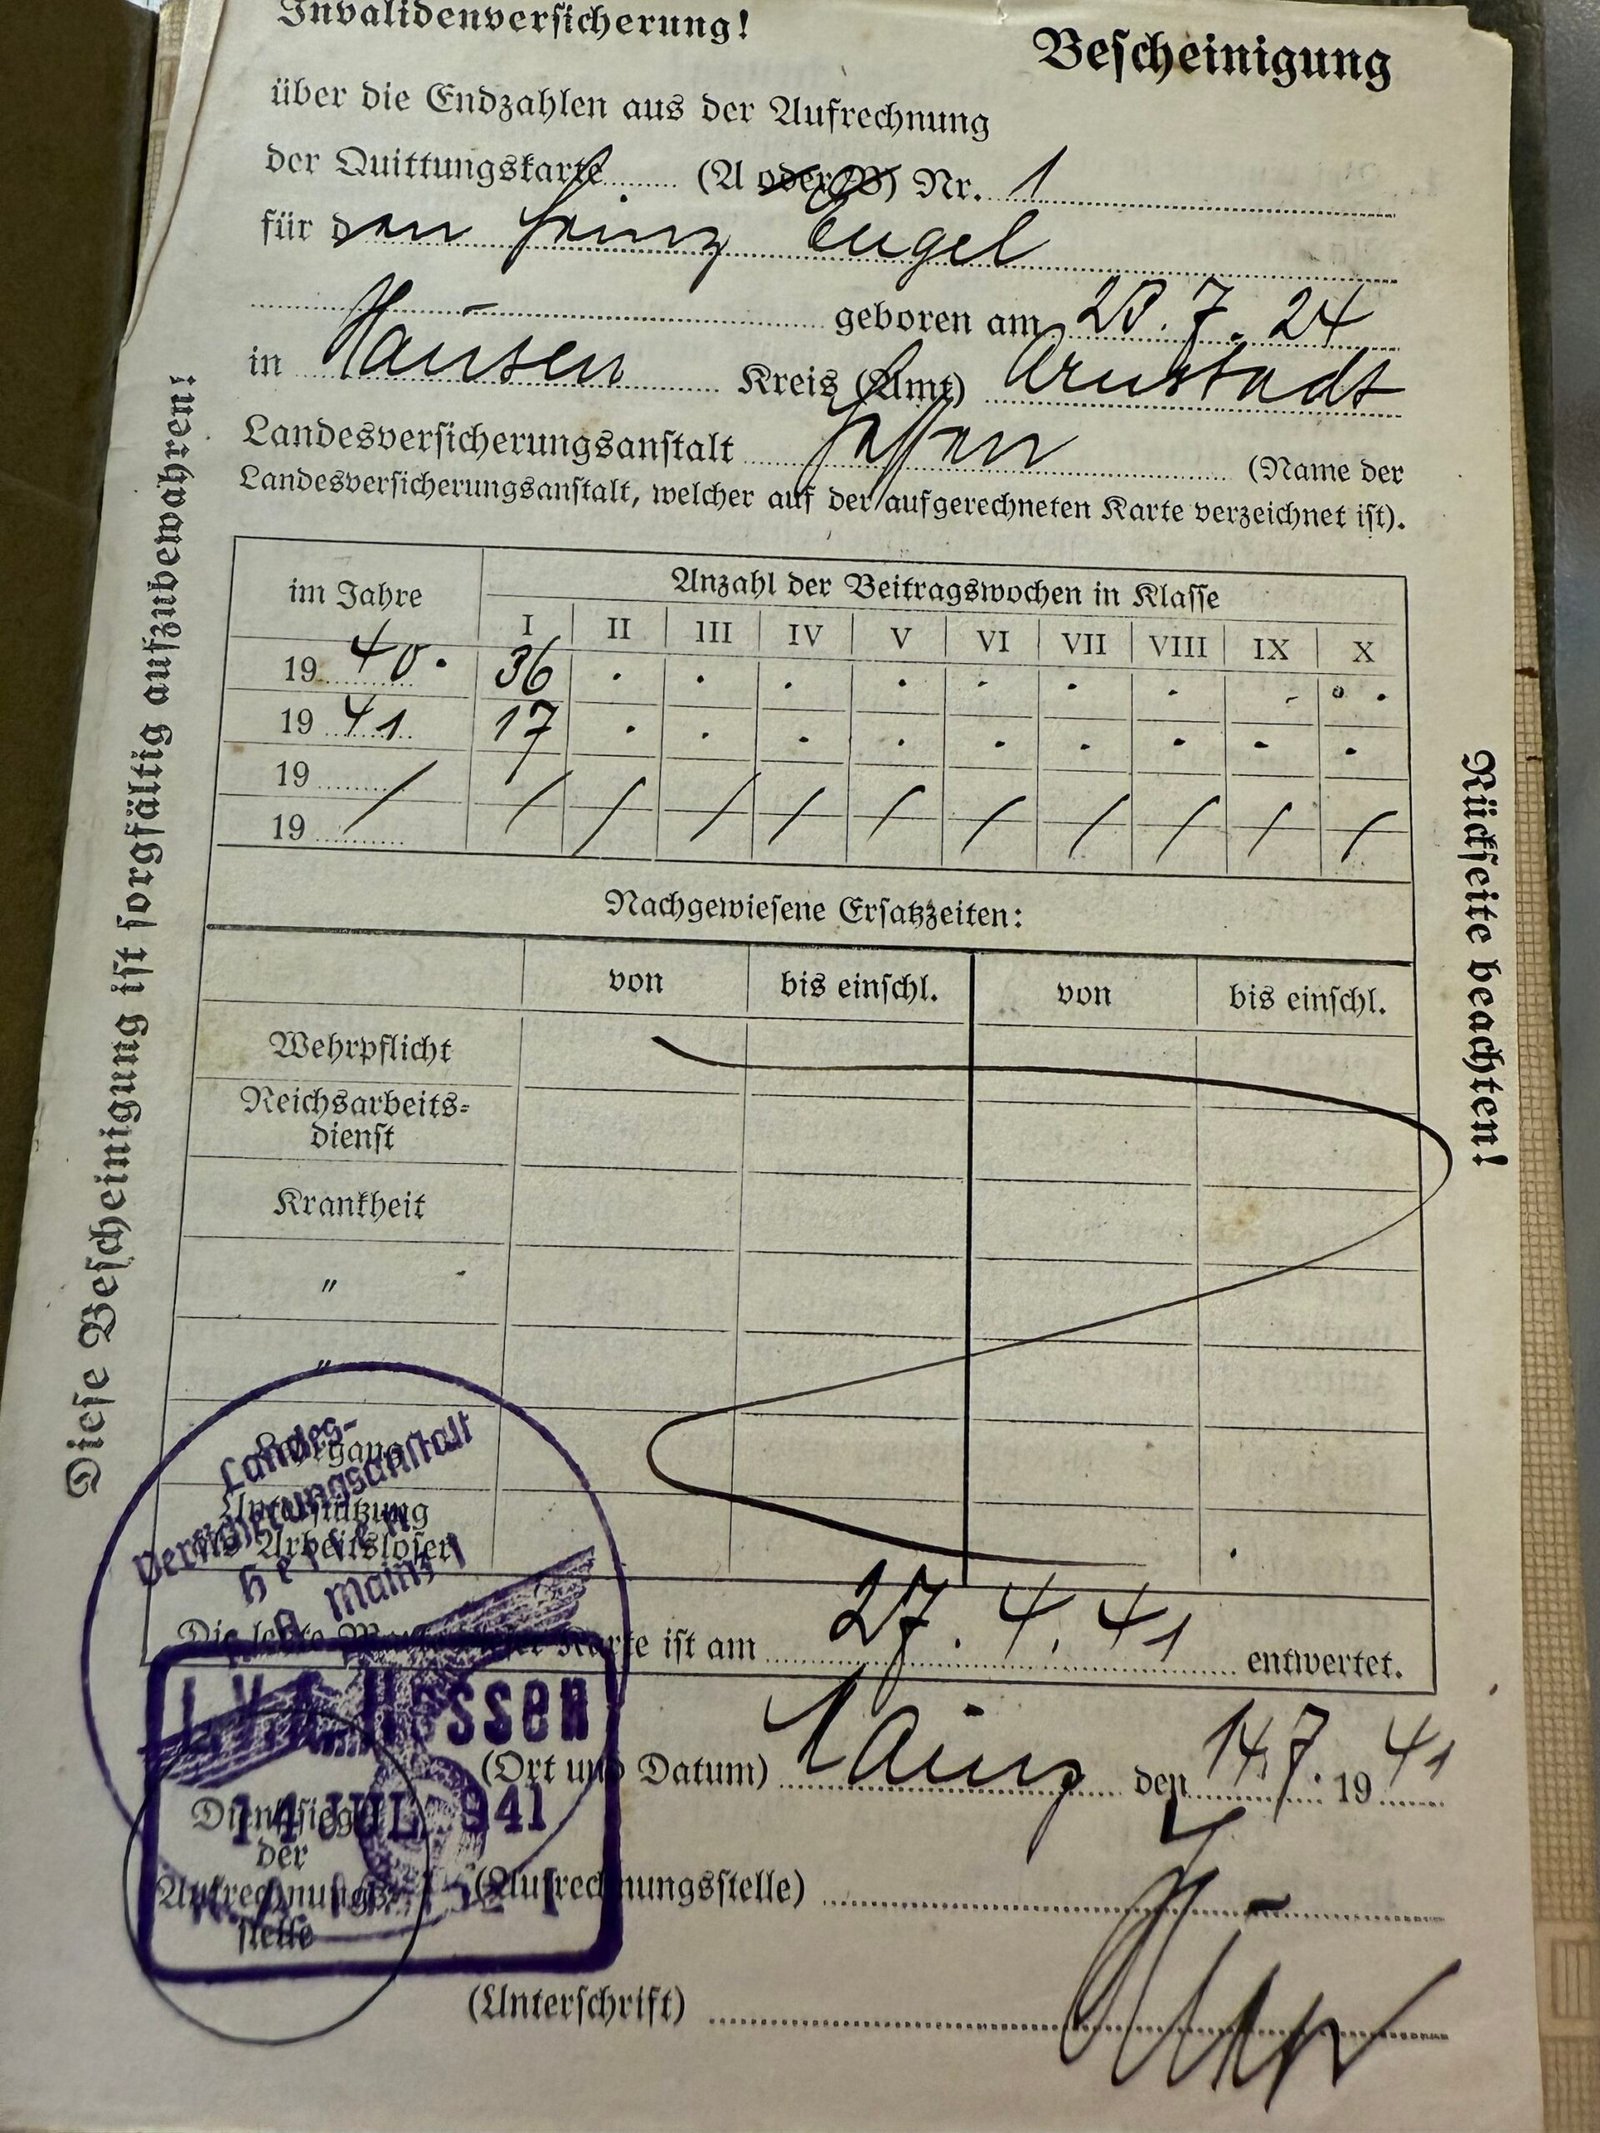 Invalidenversicherung!
Bescheinigung
über die Endzahlen aus der Aufrechnung
der Quittungskarte (A oder B) Nr. 1
für den Heinz Engel
geboren am 28.7.24
in Hausen Kreis (Amt) Arnstadt
Landesversicherungsanstalt Hessen (Name der
Landesversicherungsanstalt, welcher auf der aufgerechneten Karte verzeichnet ist).
im Jahre Anzahl der Beitragswochen in Klasse
I II III IV V VI VII VIII IX X
19 40. 36 . . . . . . . . .
19 41. 17 . . . . . . . . .
19
19 / / / / / / / / / / /
Nachgewiesene Ersatzzeiten:
von bis einschl. von bis einschl.
Wehrpflicht
Reichsarbeits-
dienst
Krankheit
"
"
Unterstützung
Arbeitsloser
Die letzte Marke dieser Karte ist am 27.4.41 entwertet.
(Ort und Datum) Mainz den 14.7.1941
Dienstsiegel
der
Aufrechnungs-
stelle
(Aufrechnungsstelle)
(Unterschrift)
Landes-
Versicherungsanstalt
Hessen
Mainz
L.V.A. Hessen
14. JUL. 1941
Diese Bescheinigung ist sorgfältig aufzubewahren!
Rückseite beachten!